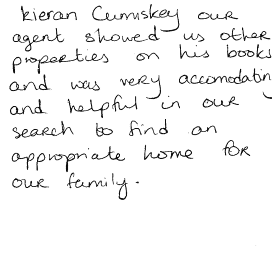 kieran Cumiskey our
agent showed us other
properties on his books
and was very accomodatin
and helpful in our
search to find an
appropriate home for
our family.